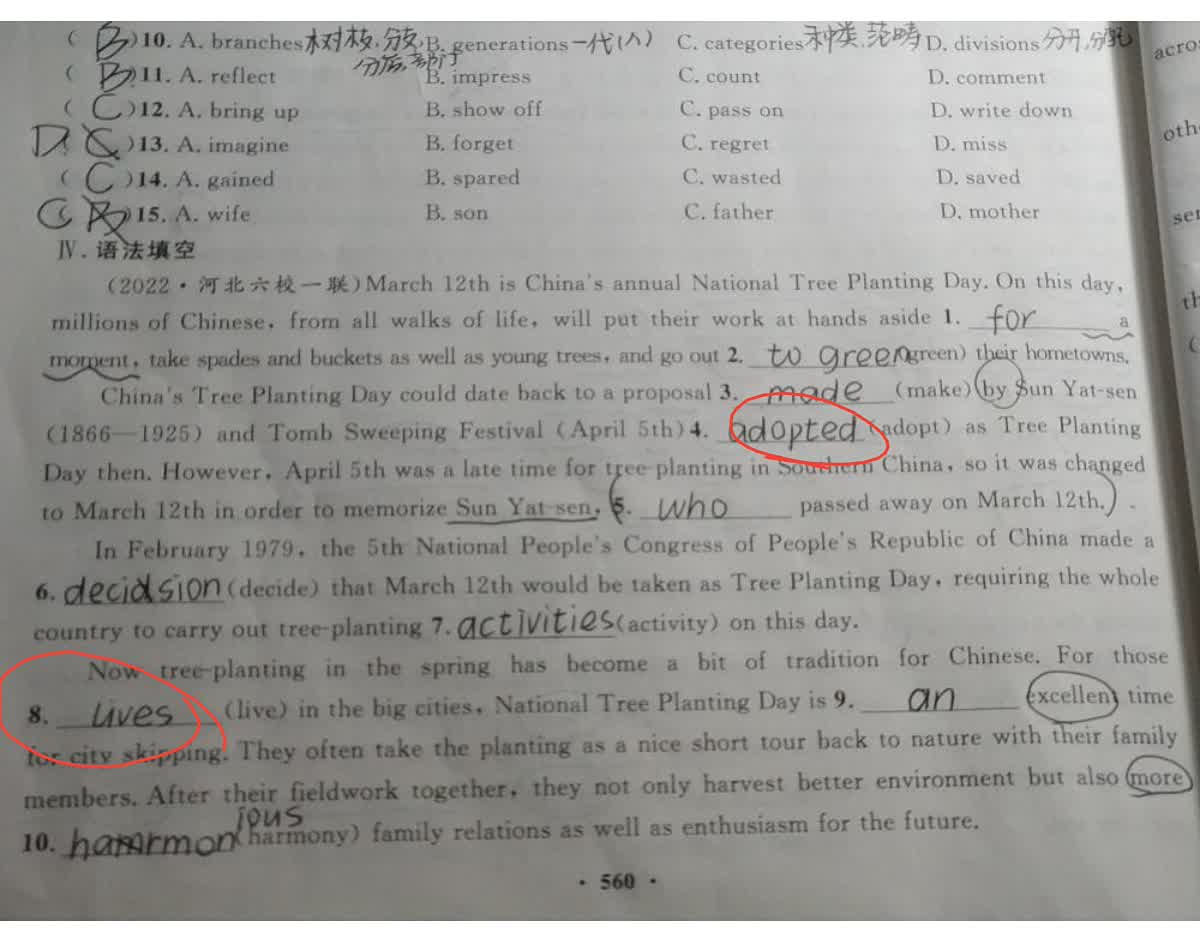 ( B )10. A. branches树枝,分支, B. generations一代(人) C. categories种类,范畴 D. divisions分开,分
分店,部门
( B )11. A. reflect B. impress C. count D. comment
( C )12. A. bring up B. show off C. pass on D. write down
D C )13. A. imagine B. forget C. regret D. miss
( C )14. A. gained B. spared C. wasted D. saved
C B )15. A. wife B. son C. father D. mother
Ⅳ. 语法填空
(2022·河北六校一联)March 12th is China's annual National Tree Planting Day. On this day,
millions of Chinese, from all walks of life, will put their work at hands aside 1. for a
moment, take spades and buckets as well as young trees, and go out 2. to green (green) their hometowns.
China's Tree Planting Day could date back to a proposal 3. made (make) by Sun Yat-sen
(1866—1925) and Tomb Sweeping Festival (April 5th) 4. adopted (adopt) as Tree Planting
Day then. However, April 5th was a late time for tree planting in Southern China, so it was changed
to March 12th in order to memorize Sun Yat-sen, 5. who passed away on March 12th.
In February 1979, the 5th National People's Congress of People's Republic of China made a
6. decidsion (decide) that March 12th would be taken as Tree Planting Day, requiring the whole
country to carry out tree-planting 7. activities (activity) on this day.
Now tree-planting in the spring has become a bit of tradition for Chinese. For those
8. lives (live) in the big cities, National Tree Planting Day is 9. an excellent time
for city skipping. They often take the planting as a nice short tour back to nature with their family
members. After their fieldwork together, they not only harvest better environment but also more
10. hamrmonious (harmony) family relations as well as enthusiasm for the future.
· 560 ·
acro
oth
set
th
(